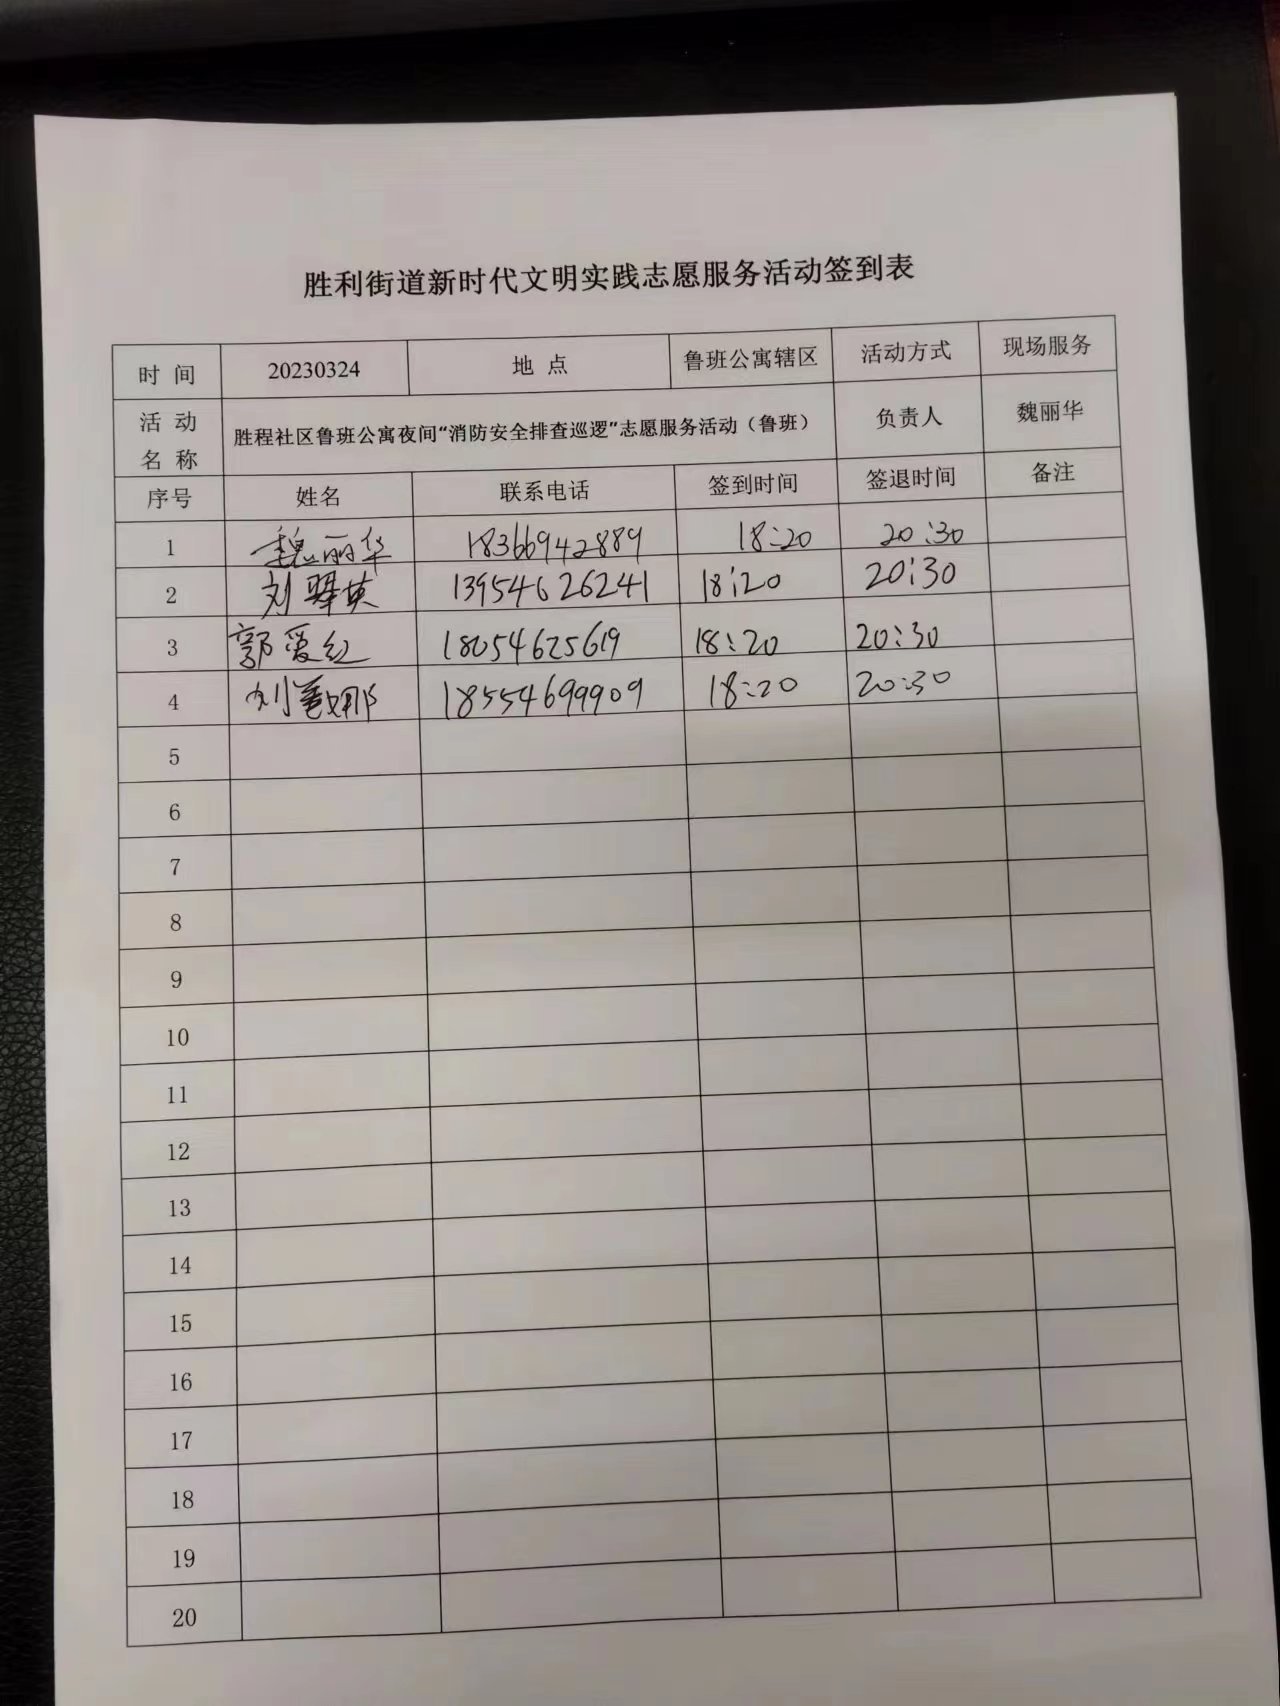 胜利街道新时代文明实践志愿服务活动签到表
时 间 20230324 地 点 鲁班公寓辖区 活动方式 现场服务
活 动 名 称 胜程社区鲁班公寓夜间“消防安全排查巡逻”志愿服务活动（鲁班） 负责人 魏丽华
序号 姓名 联系电话 签到时间 签退时间 备注
1 魏丽华 18366942889 18:20 20:30
2 刘翠英 13954626241 18:20 20:30
3 郭爱红 18054625619 18:20 20:30
4 刘 娜 18554699909 18:20 20:30
5
6
7
8
9
10
11
12
13
14
15
16
17
18
19
20